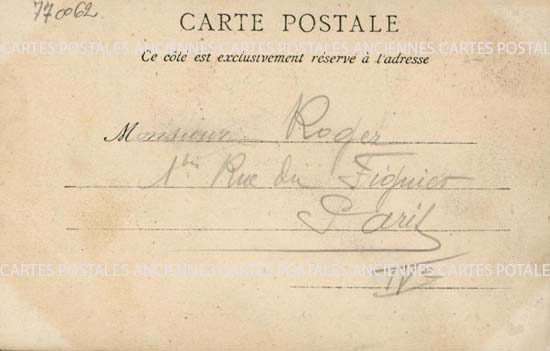 770062
CARTE POSTALE
CARTES POSTALES ANCIENNES CARTES POSTALES ANCIENNES CARTES POSTALES
Ce côté est exclusivement réservé à l'adresse
Monsieur Roger
1 bis Rue du Figuier
Paris
IVe
CARTES POSTALES ANCIENNES CARTES POSTALES ANCIENNES CARTES POTALES